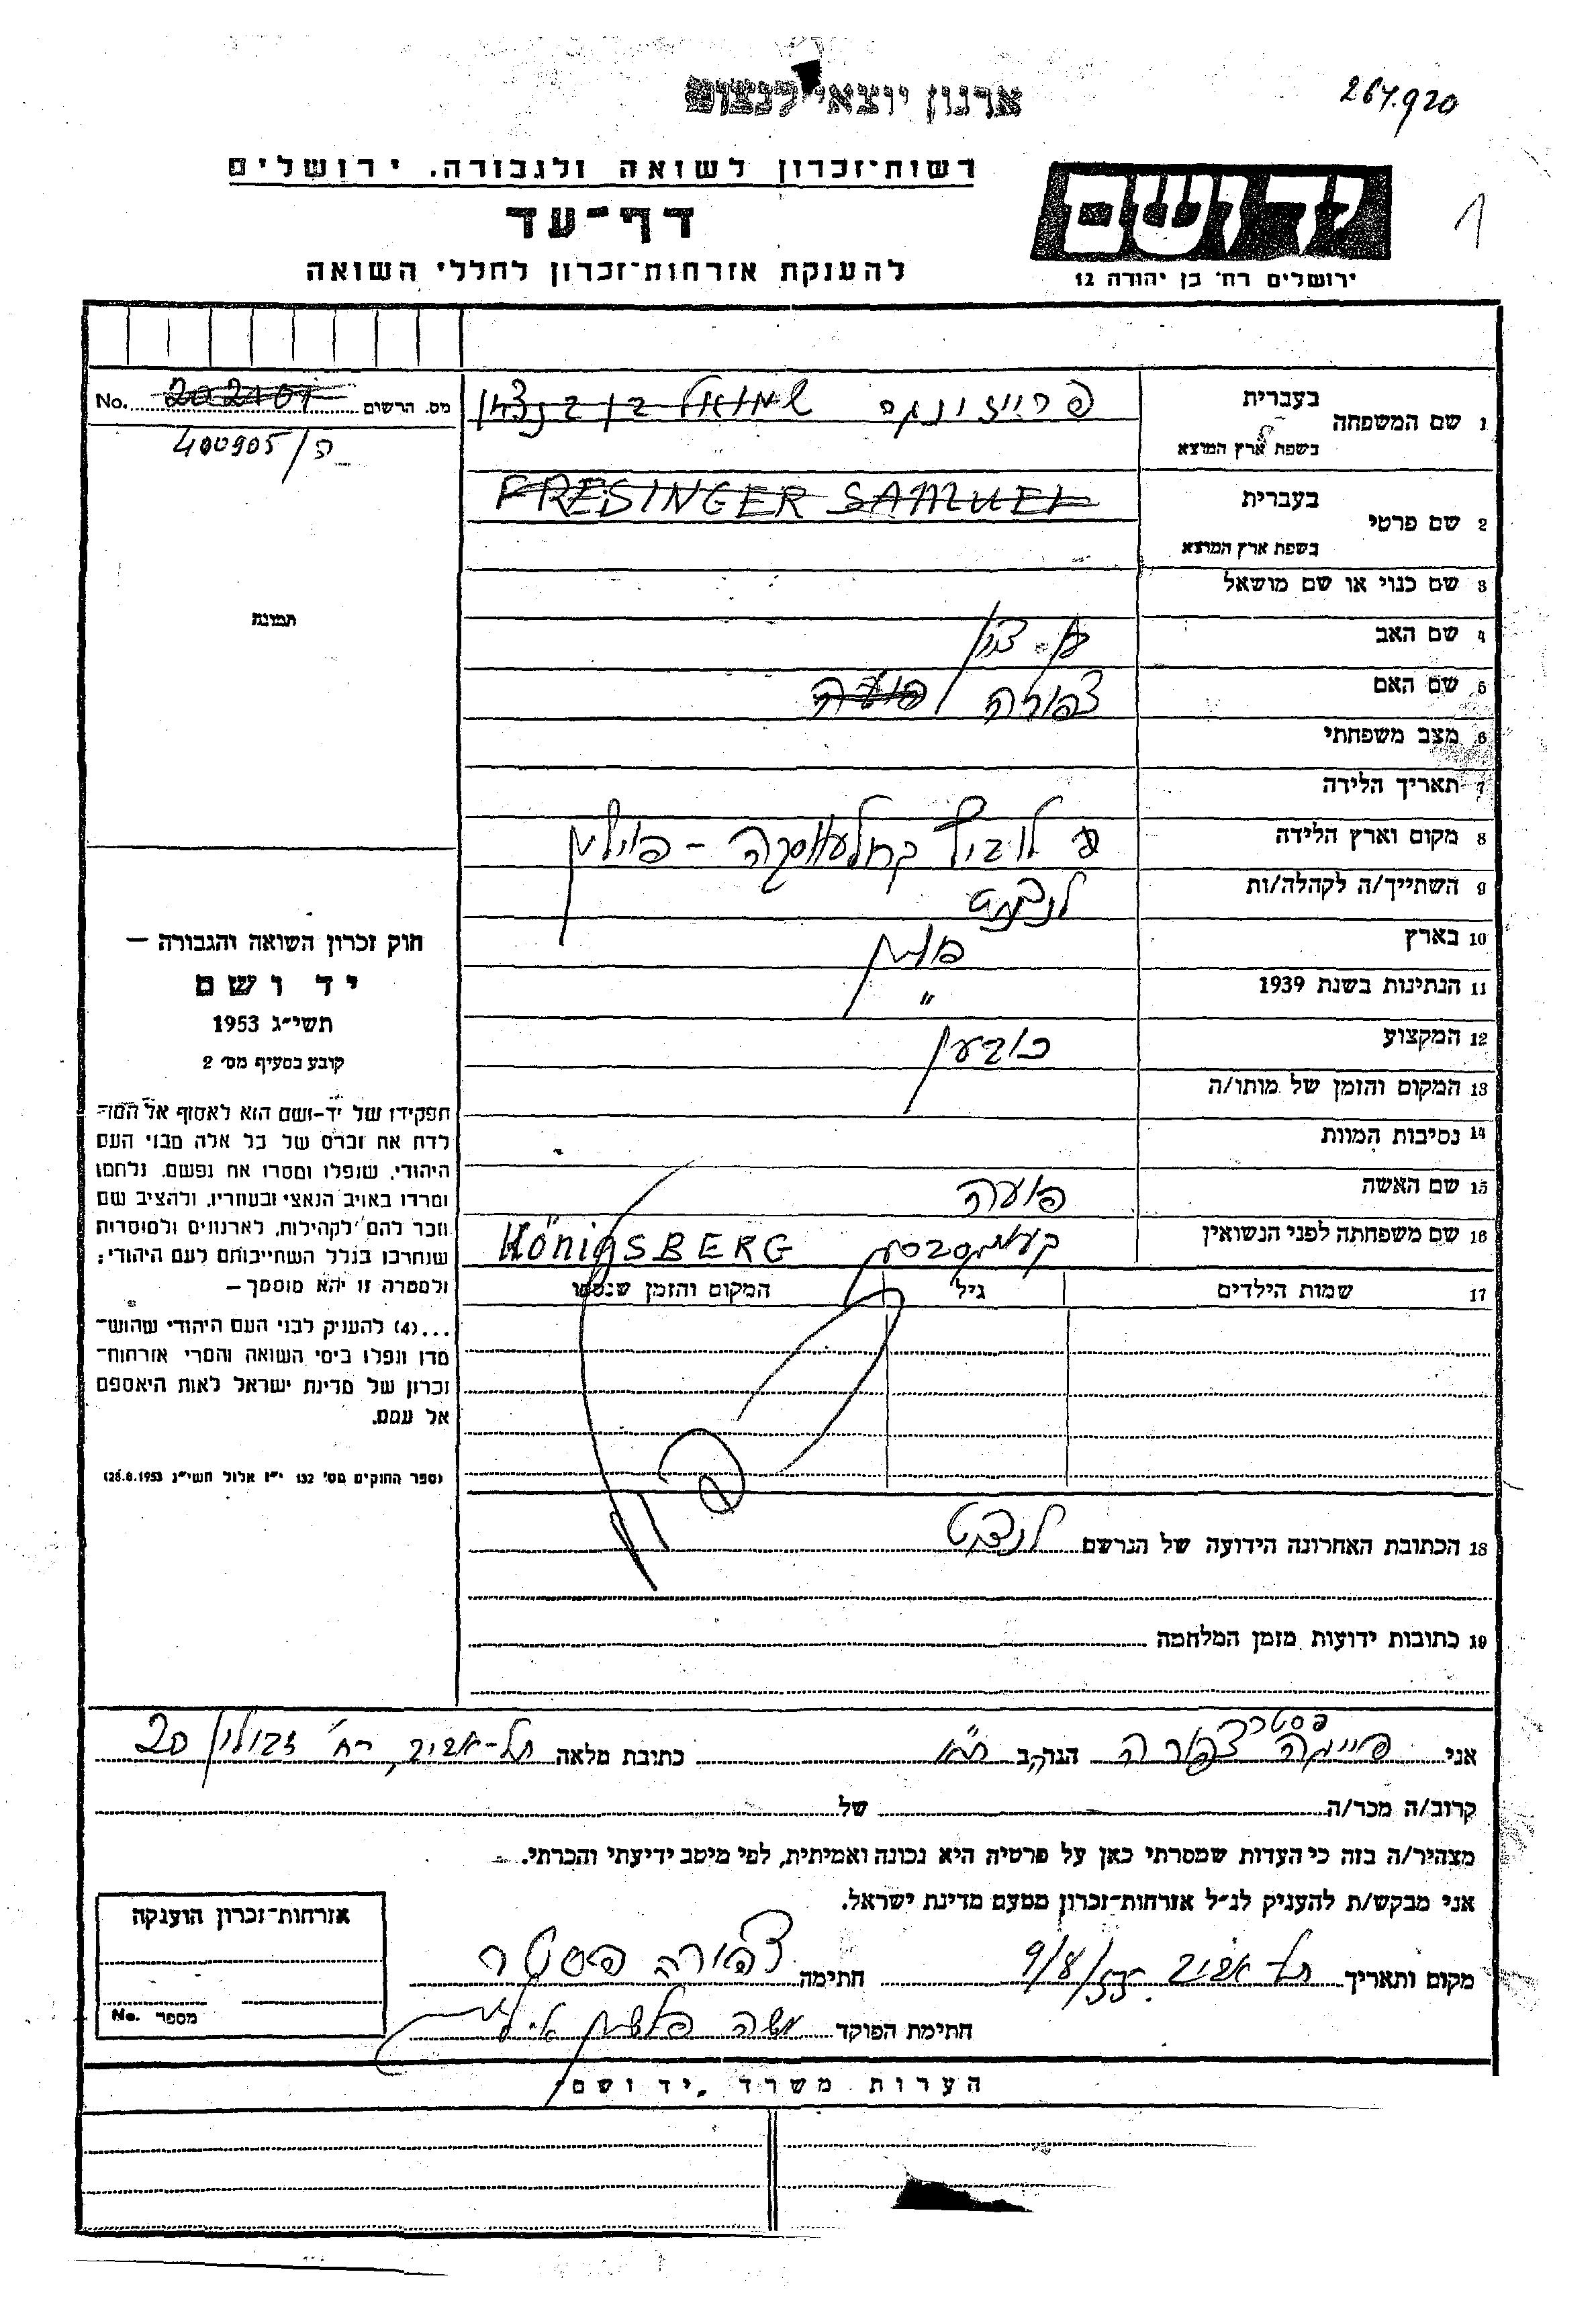 ארגון יוצאי לנצוט
267.920
1
רשות־זכרון לשואה ולגבורה. ירושלים
דף־עד
להענקת אזרחות־זכרון לחללי השואה
יד ושם
ירושלים רח׳ בן יהודה 12
No. 202107 מס. הרשום
ה/400905
תמונה
1 שם המשפחה בעברית פרייזינגר שמואל בן בנציון
בשפת ארץ המוצא
2 שם פרטי בעברית FRESINGER SAMUEL
בשפת ארץ המוצא
3 שם כנוי או שם מושאל
4 שם האב בן-ציון
5 שם האם צפורה פועה
6 מצב משפחתי
7 תאריך הלידה
8 מקום וארץ הלידה פולין
9 השתייך/ה לקהלה/ות לנצוט
10 בארץ פולין
11 הנתינות בשנת 1939 "
12 המקצוע כובען
13 המקום והזמן של מותו/ה
14 נסיבות המוות
15 שם האשה פועה
16 שם משפחתה לפני הנשואין קעניגסבערג KÖNIGSBERG
17 שמות הילדים גיל המקום והזמן שנספו
18 הכתובת האחרונה הידועה של הנרשם לנצוט
19 כתובות ידועות מזמן המלחמה
חוק זכרון השואה והגבורה —
יד ושם
תשי״ג 1953
קובע בסעיף מס׳ 2
תפקידו של יד־ושם הוא לאסוף אל המו־
לדת את זכרם של כל אלה מבני העם
היהודי, שנפלו ומסרו את נפשם, נלחמו
ומרדו באויב הנאצי ובעוזריו, ולהציב שם
וזכר להם, לקהילות, לארגונים ולמוסדות
שנחרבו בגלל השתייכותם לעם היהודי;
ולמטרה זו יהא מוסמך —
...(4) להעניק לבני העם היהודי שהוש־
מדו ונפלו בימי השואה והמרי אזרחות־
זכרון של מדינת ישראל לאות היאספם
אל עמם.
(ספר החוקים מס׳ 132 י״ז אלול תשי״ג 28.8.1953)
פסטר
אני פייגה צפורה הגר/ה ב ת״א כתובת מלאה תל-אביב, רח׳ זבולון 20
קרוב/ה מכר/ה של
מצהיר/ה בזה כי העדות שמסרתי כאן על פרטיה היא נכונה ואמיתית, לפי מיטב ידיעתי והכרתי.
אני מבקש/ת להעניק לנ״ל אזרחות־זכרון מטעם מדינת ישראל.
מקום ותאריך תל אביב חתימה צפורה פסטר
חתימת הפוקד משה
אזרחות־זכרון הוענקה
No. מספר
הערות משרד „יד ושם"